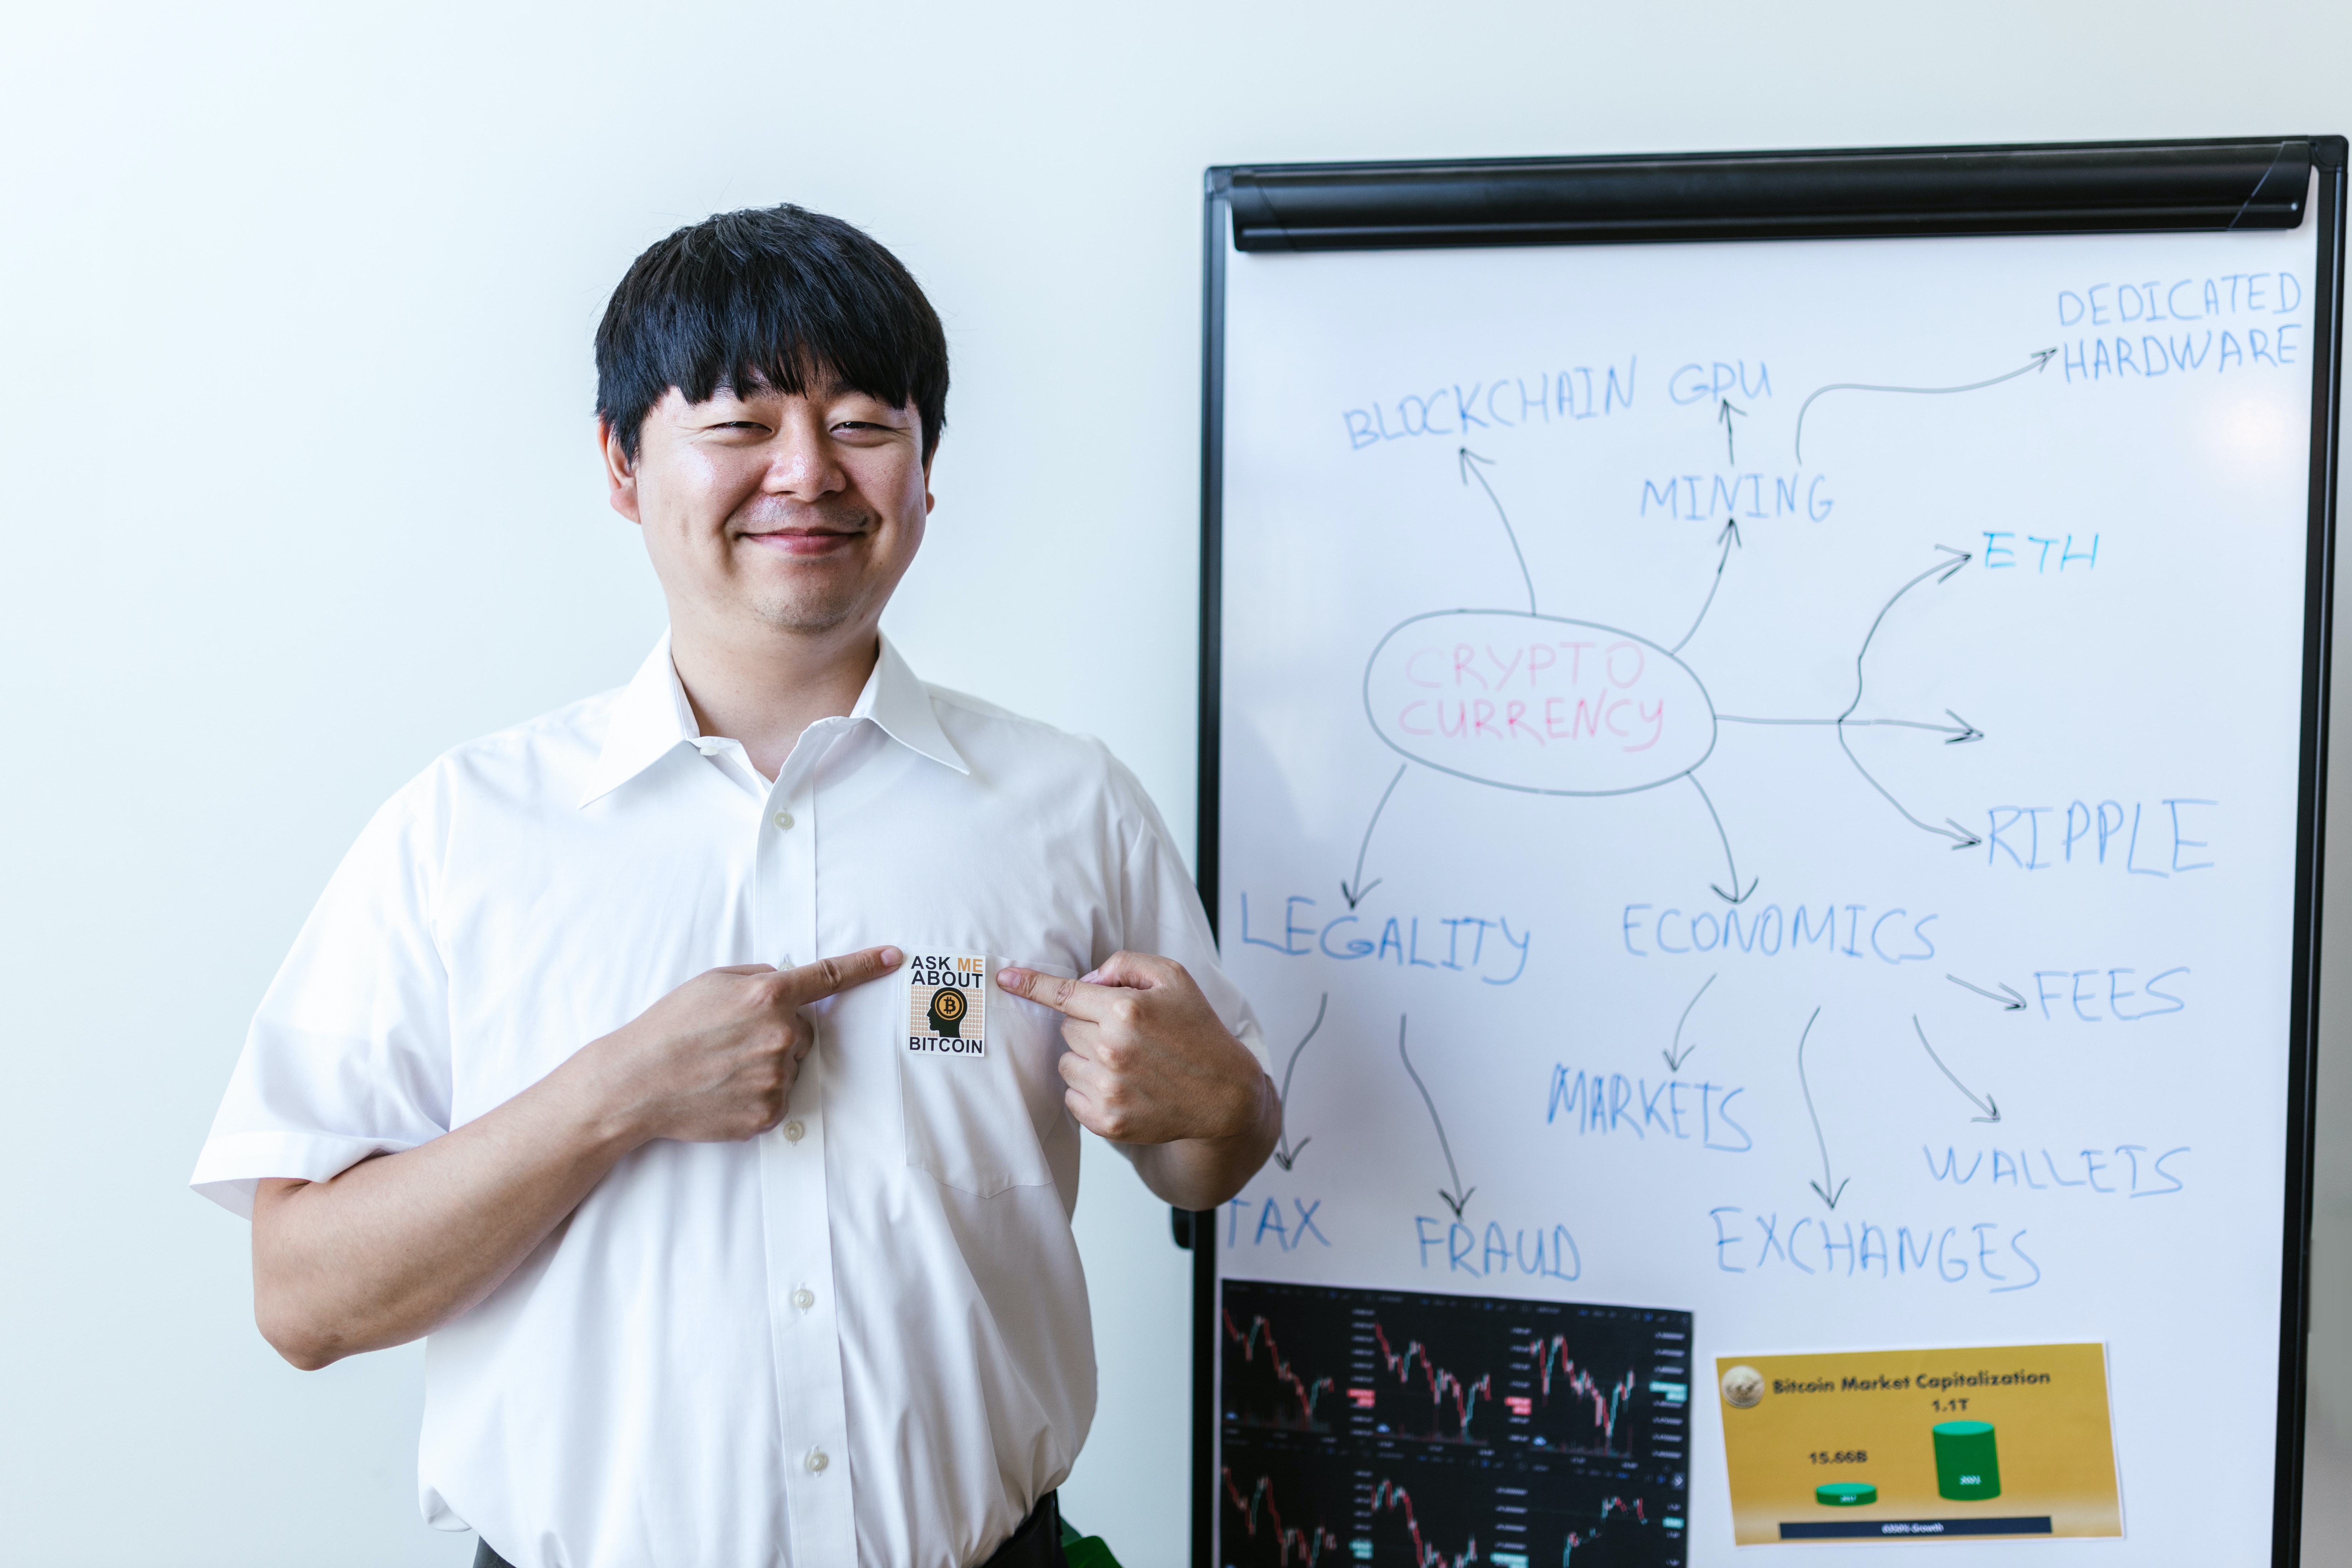 ASK ME
ABOUT
BITCOIN
DEDICATED
HARDWARE
BLOCKCHAIN
GPU
MINING
ETH
CRYPTO
CURRENCY
RIPPLE
LEGALITY
ECONOMICS
FEES
MARKETS
WALLETS
TAX
FRAUD
EXCHANGES
Bitcoin Market Capitalization
1.1T
15.66B
2021